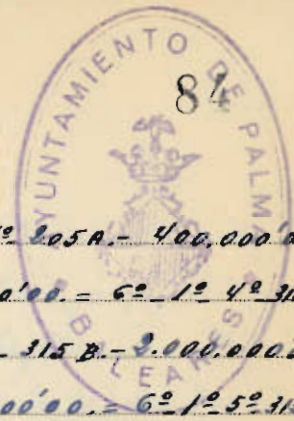 AYUNTAMIENTO DE PALMA
84
BALEARES
1º 205A.- 400,000'0
0'00. = 6º _ 1º 4º 31
_ 315 B.- 2.000.000
00'00. = 6º 1º 5º 31